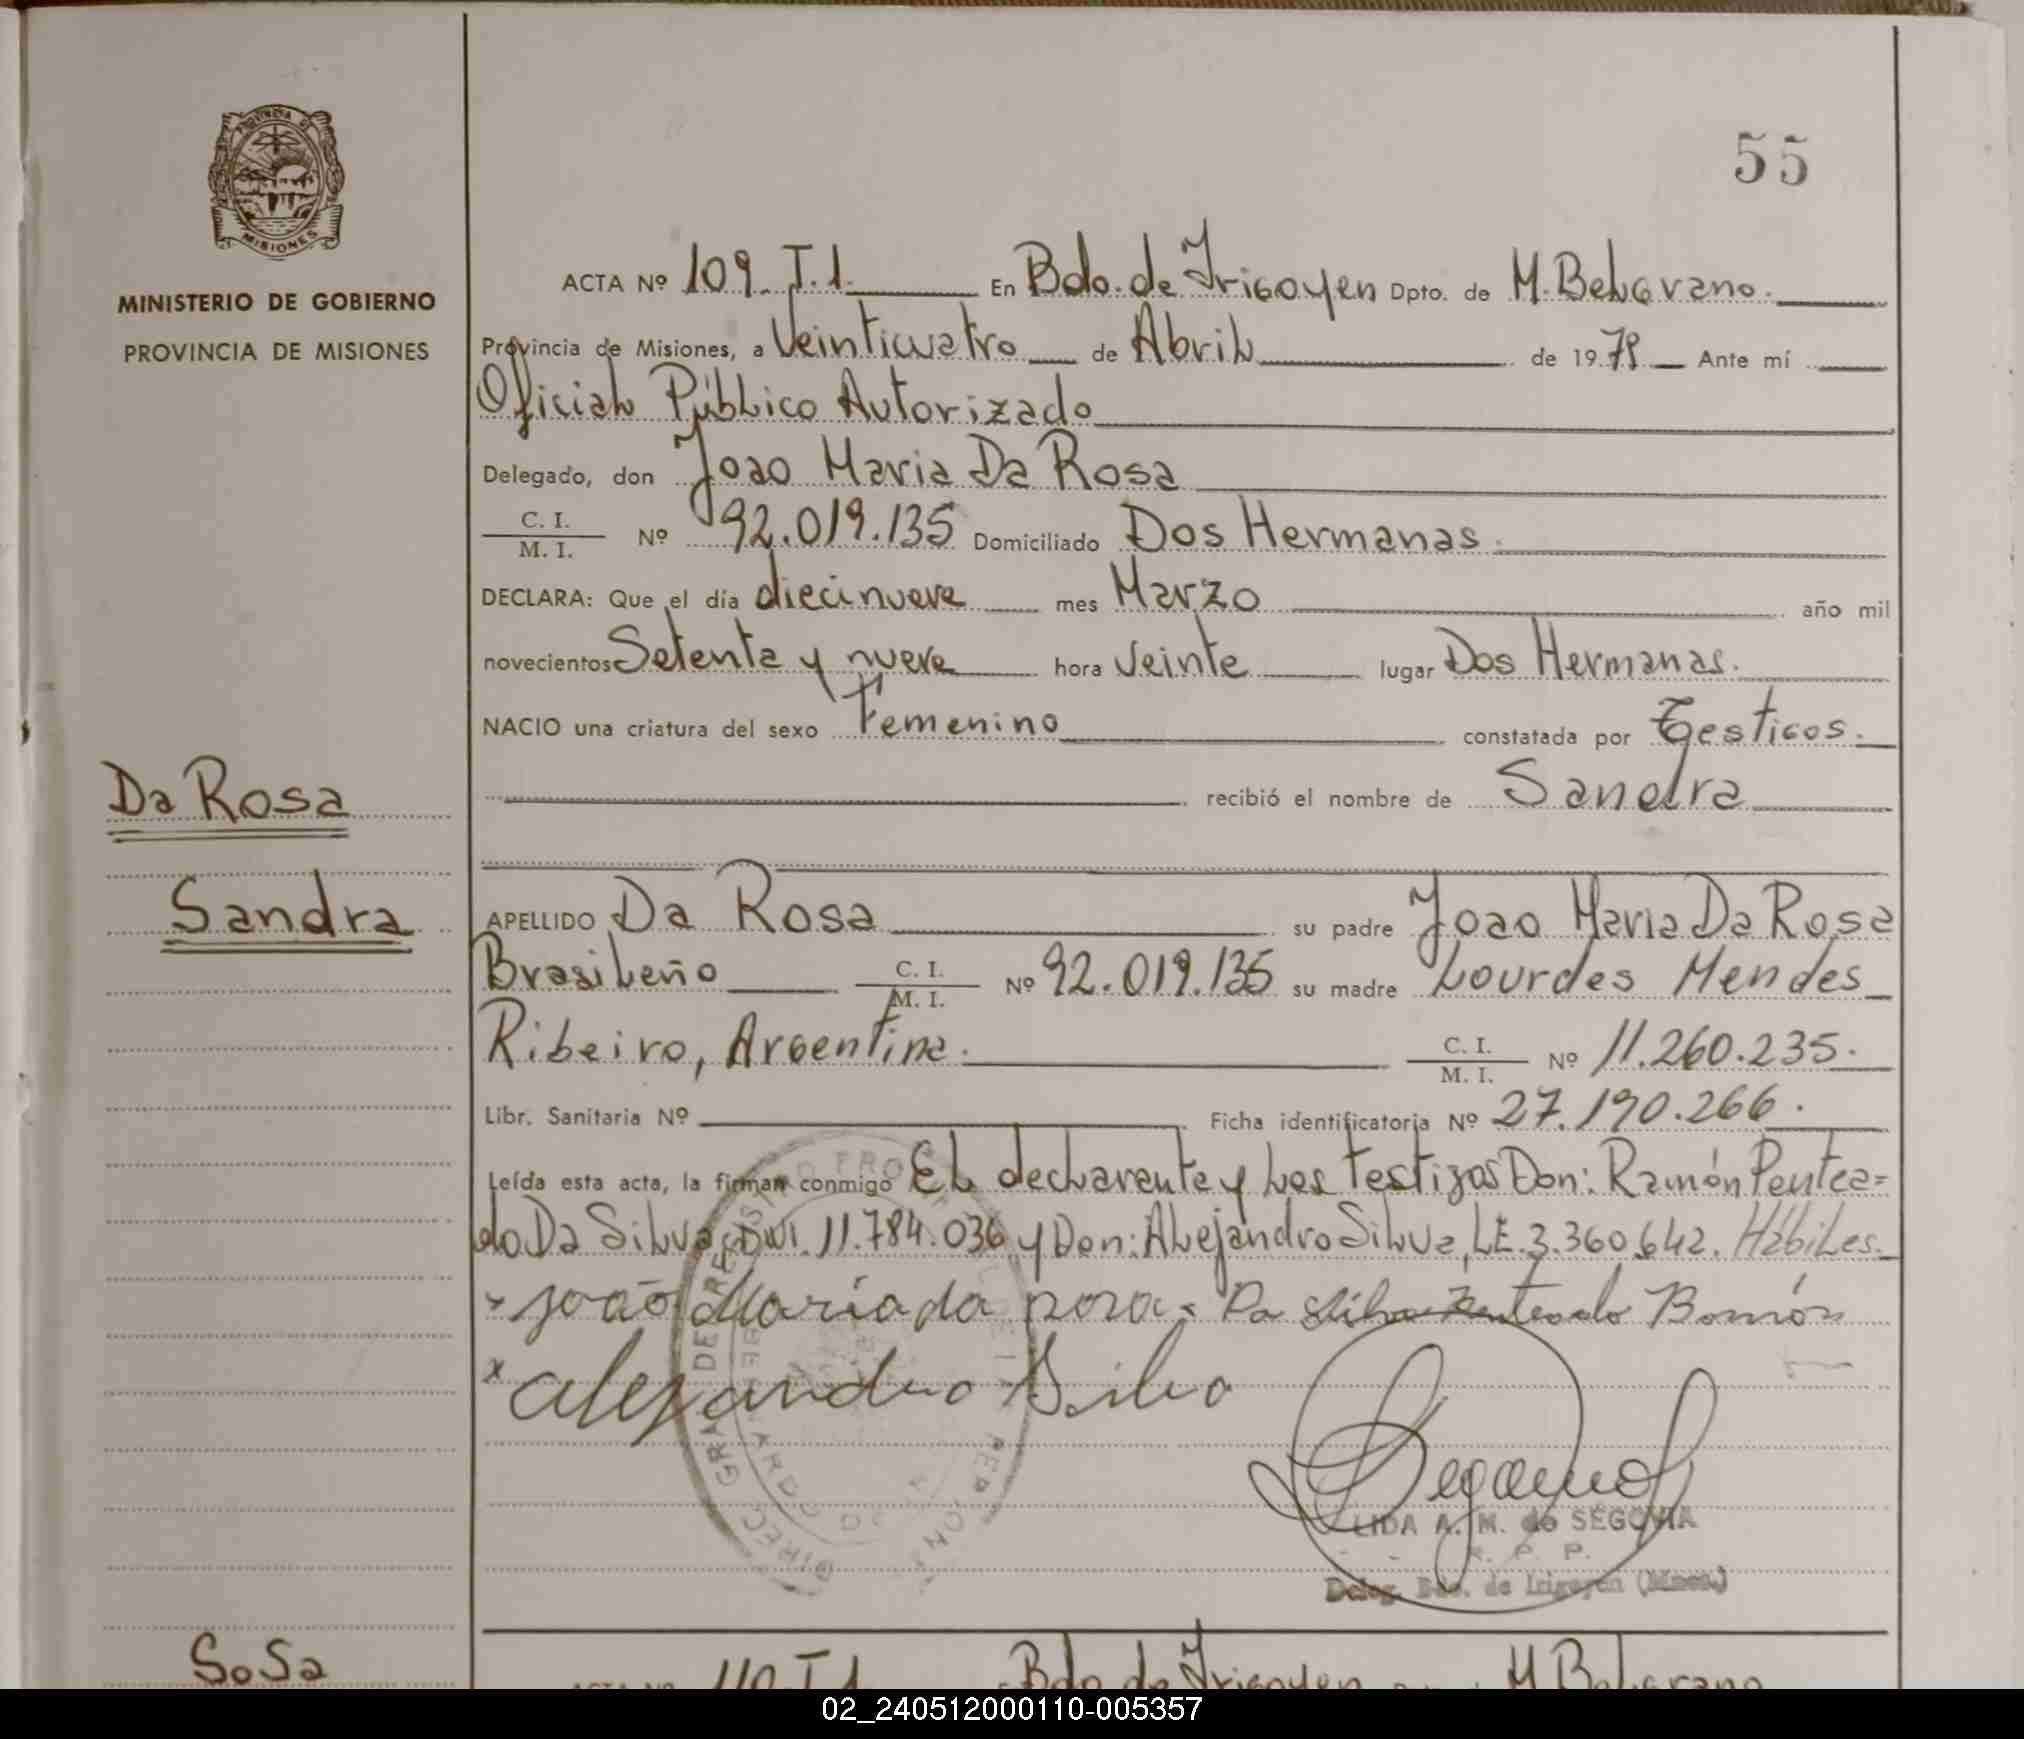 55
MINISTERIO DE GOBIERNO
PROVINCIA DE MISIONES
ACTA Nº 109. T.1. En Bdo. de Irigoyen Dpto. de M. Belgrano.
Provincia de Misiones, a Veinticuatro de Abril de 1979 Ante mí
Oficial Público Autorizado
Delegado, don Joao Maria Da Rosa
C. I.
M. I. Nº 92.019.135 Domiciliado Dos Hermanas.
DECLARA: Que el día diecinueve mes Marzo año mil
novecientos Setenta y nueve hora veinte lugar Dos Hermanas.
NACIO una criatura del sexo Femenino constatada por Testigos.
recibió el nombre de Sandra
Da Rosa
Sandra
APELLIDO Da Rosa su padre Joao Maria Da Rosa
Brasileño C. I. M. I. Nº 92.019.135 su madre Lourdes Mendes
Ribeiro, Argentina. C. I. M. I. Nº 11.260.235.
Libr. Sanitaria Nº Ficha identificatoria Nº 27.190.266.
Leída esta acta, la firman conmigo El declarante y los testigos Don: Ramón Pentea=
do Da Silva, DNI. 11.784.036 y Don: Alejandro Silva, LE. 3.360.642. Hábiles.
x João Maria da rosa x Da Silva Penteado Ramón
x Alejandro Silva
Segovia
LIDA A. M. de SEGOVIA
R. P. P.
Deleg. Bdo. de Irigoyen (Mnes.)
SoSa
ACTA Nº 110. T.1 En Bdo. de Irigoyen Dpto. de M. Belgrano
02_240512000110-005357